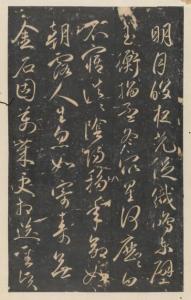 明月皎夜光促織鳴東壁
玉衡指孟冬眾星何歷〻白
不寤浩〻陰陽移年命如
朝露人生忽如寄壽無
金石固萬歲更相送